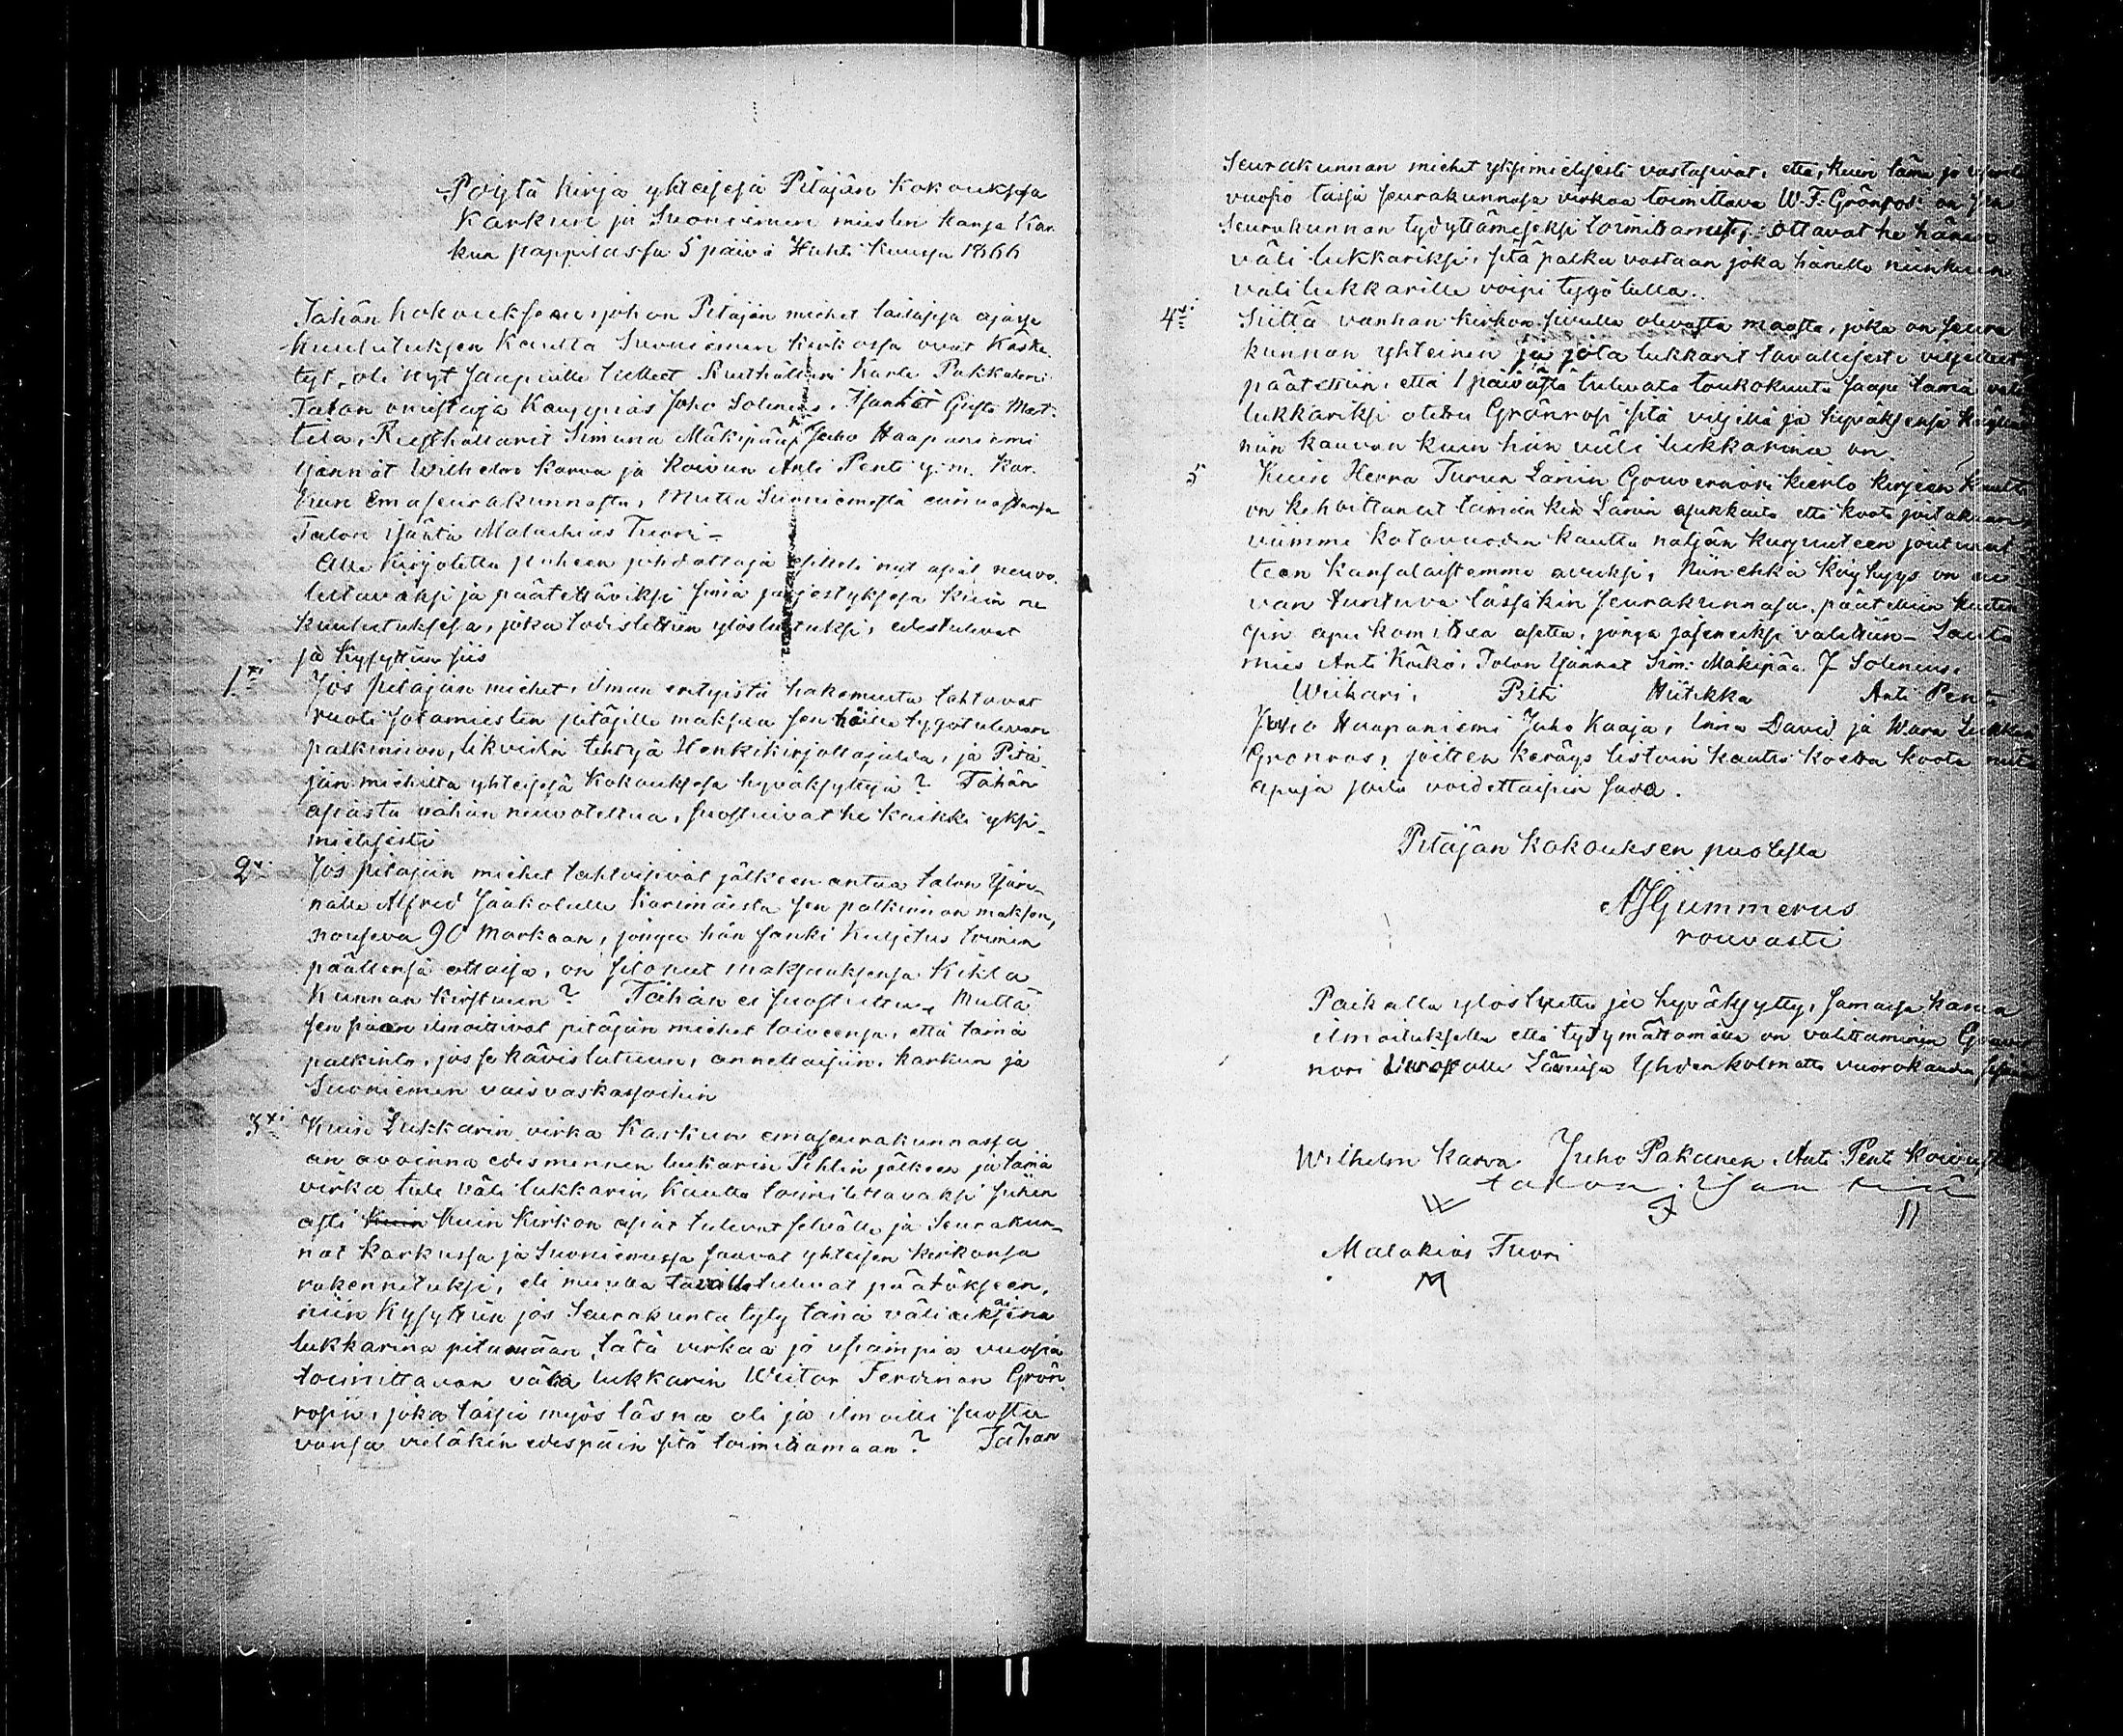 Pöytä kirja yhteisesä Pitäjän kokouksesa
Karkun ja Suoniemen miesten kansa Kar
kun pappilassa 5 päivä Huhti kuusa 1866
Tähän kokoukseen, johon Pitäjän miehet laillisesa ajasa
kuulutuksen kautta Suoniemen kirkossa ovat käske
tyt, oli nyt saapuille tulleet Rusthollari Karle Pakkalan
Talon omistaja Kauppias Joho Solenius, Isännät Gusta Mat-
tila, Rusthollarit Simuna Mäkipää, Juho Haapaniemi
Isännät Wilhelm Karva ja Koivun Anti Penti y. m. Kar-
kun Emäseurakunnasta, Mutta Suoniemestä ainoastansa
Talon Isäntä Malachias Tuori –
Alle kirjoitettu puheen johdattaja esitteli nyt asiat neuvo
teltavaksi ja päätettäviksi siinä järjestyksesä kuin ne
kuulutuksesa, joka todistettiin ylösluetuksi, edestulevat
ja kysyttiin siis
1xi Jos pitäjän miehet, ilman erityistä hakemusta tahtovat
ruoti sotamiesten pitäjille maksaa sen heille tygötulevan
palkinnon, likvidin tehtyä Henkikirjoittajalda, ja Pitä
jän miehiltä yhteisesä kokouksesa hyväksyttyä? Tähän
asiasta vähän neuvoteltua, suostuivat he kaikki yksi-
mielisesti
2xi Jos pitäjän miehet tahtoisivat jälkeen antaa talon Isän-
nälle Alfred Jaakolalle Karimäestä sen palkinnon makson,
nouseva 90 Markaan, jonga hän fanki kuljetus toimen
päällensä ottaisa, on sitonut maksauksensa Kihla
kunnan kirstuun? Tähän ei suostuttu, Mutta
sen siaan ilmoittivat pitäjän miehet toiveensa, että tämä
palkinto, jos se kävis laatuun, annettaisiin Karkun ja
Suoniemen vaivaskassoihin
3xi Kuin Lukkarin virka Karkun emäseurakunnassa
on avoinna edesmennen lukarin Pihlin jälkeen ja tämä
virka tule väli lukkarin kautta toimitettavaksi siihen
asti kuin kuin kirkon asiat tulevat selvälle ja Seurakun-
nat Karkussa ja Suoniemessa saavat yhteisen kirkonsa
rakennetuksi, eli muulla tavalla tulevat päätökseen,
niin kysyttiin jos Seurakunta tyty tänä väliaikaisena
lukkarina pitämään tätä virkaa jo usiampia vuosia
toimittavan väliä lukkarin Wictor Ferdinan Grön
rosin, joka täsä myös läsna oli ja ilmoitti suostu
vansa vieläkin edespäin sitä toimittamaan? Tähän
Seurakunnan miehet yksimielisesti vastasivat, että, kuin tämä jo
vuosia täsä seurakunnasa virkaa toimittava W. F. Grönros on sen
Seurakunnan tydyttämiseksi toimittanut, ottavat he hänen
väli lukkariksi, sitä palka vastaan joka hänelle niinkuin
väli lukkarille voipi tygö tulla.
4xi Siittä vanhan kirkon sivulla olevasta maasta, joka on seura
kunnan yhteinen ja jota lukkarit tavallisesti viljelleet
päätettiin, että 1 päivästä tulevata toukokuuta saapi tämä väli
lukkariksi otettu Grönrosi sitä viljellä ja hyväksensä käyttää
niin kauvan kuin hän väli lukkarina on.
5 Kuin Herra Turun Länin Gouvernöri kierto kirjeen kautta
on kehoittanut tämän kin Länin asukkaita että koota joitakuita
viimme katovuoden kautta nälján kurjuuteen joutunut
teen Kansalaistemme avuksi, Niin ehkä köyhyys on ai
van tuntuva tässäkin seurakunnasa, päätettiin kuiten
gin apu komitea asettaa, jonga jäseneiksi valittiin – Lauta
mies Anti Köikö, Talon Isännat Sim: Mäkipää, J Solenius,
Wiihari, Piltti Hiitikka Anti Penti
Juho Haapaniemi Juho Kaaja, Enna David ja Wara Lukkari
Gronros, joitten keräys listain kautta koetta koota niitä
apuja joita voidettaisin sada.
Pitäjän kokouksen puolesta
AJGummerus
rovasti
Paikalla ylösluettu ja hyväksytty, samasa kansa
ilmoituksella että tytymättömällä on valittaminen Gouver
nöri Läänisä Yhden kolmatta vuorokauden sisään
Wilhelm Karva Juho Pakanen Anti Penti Koivusta
talon Isäntiä
Malakias Tuori
M